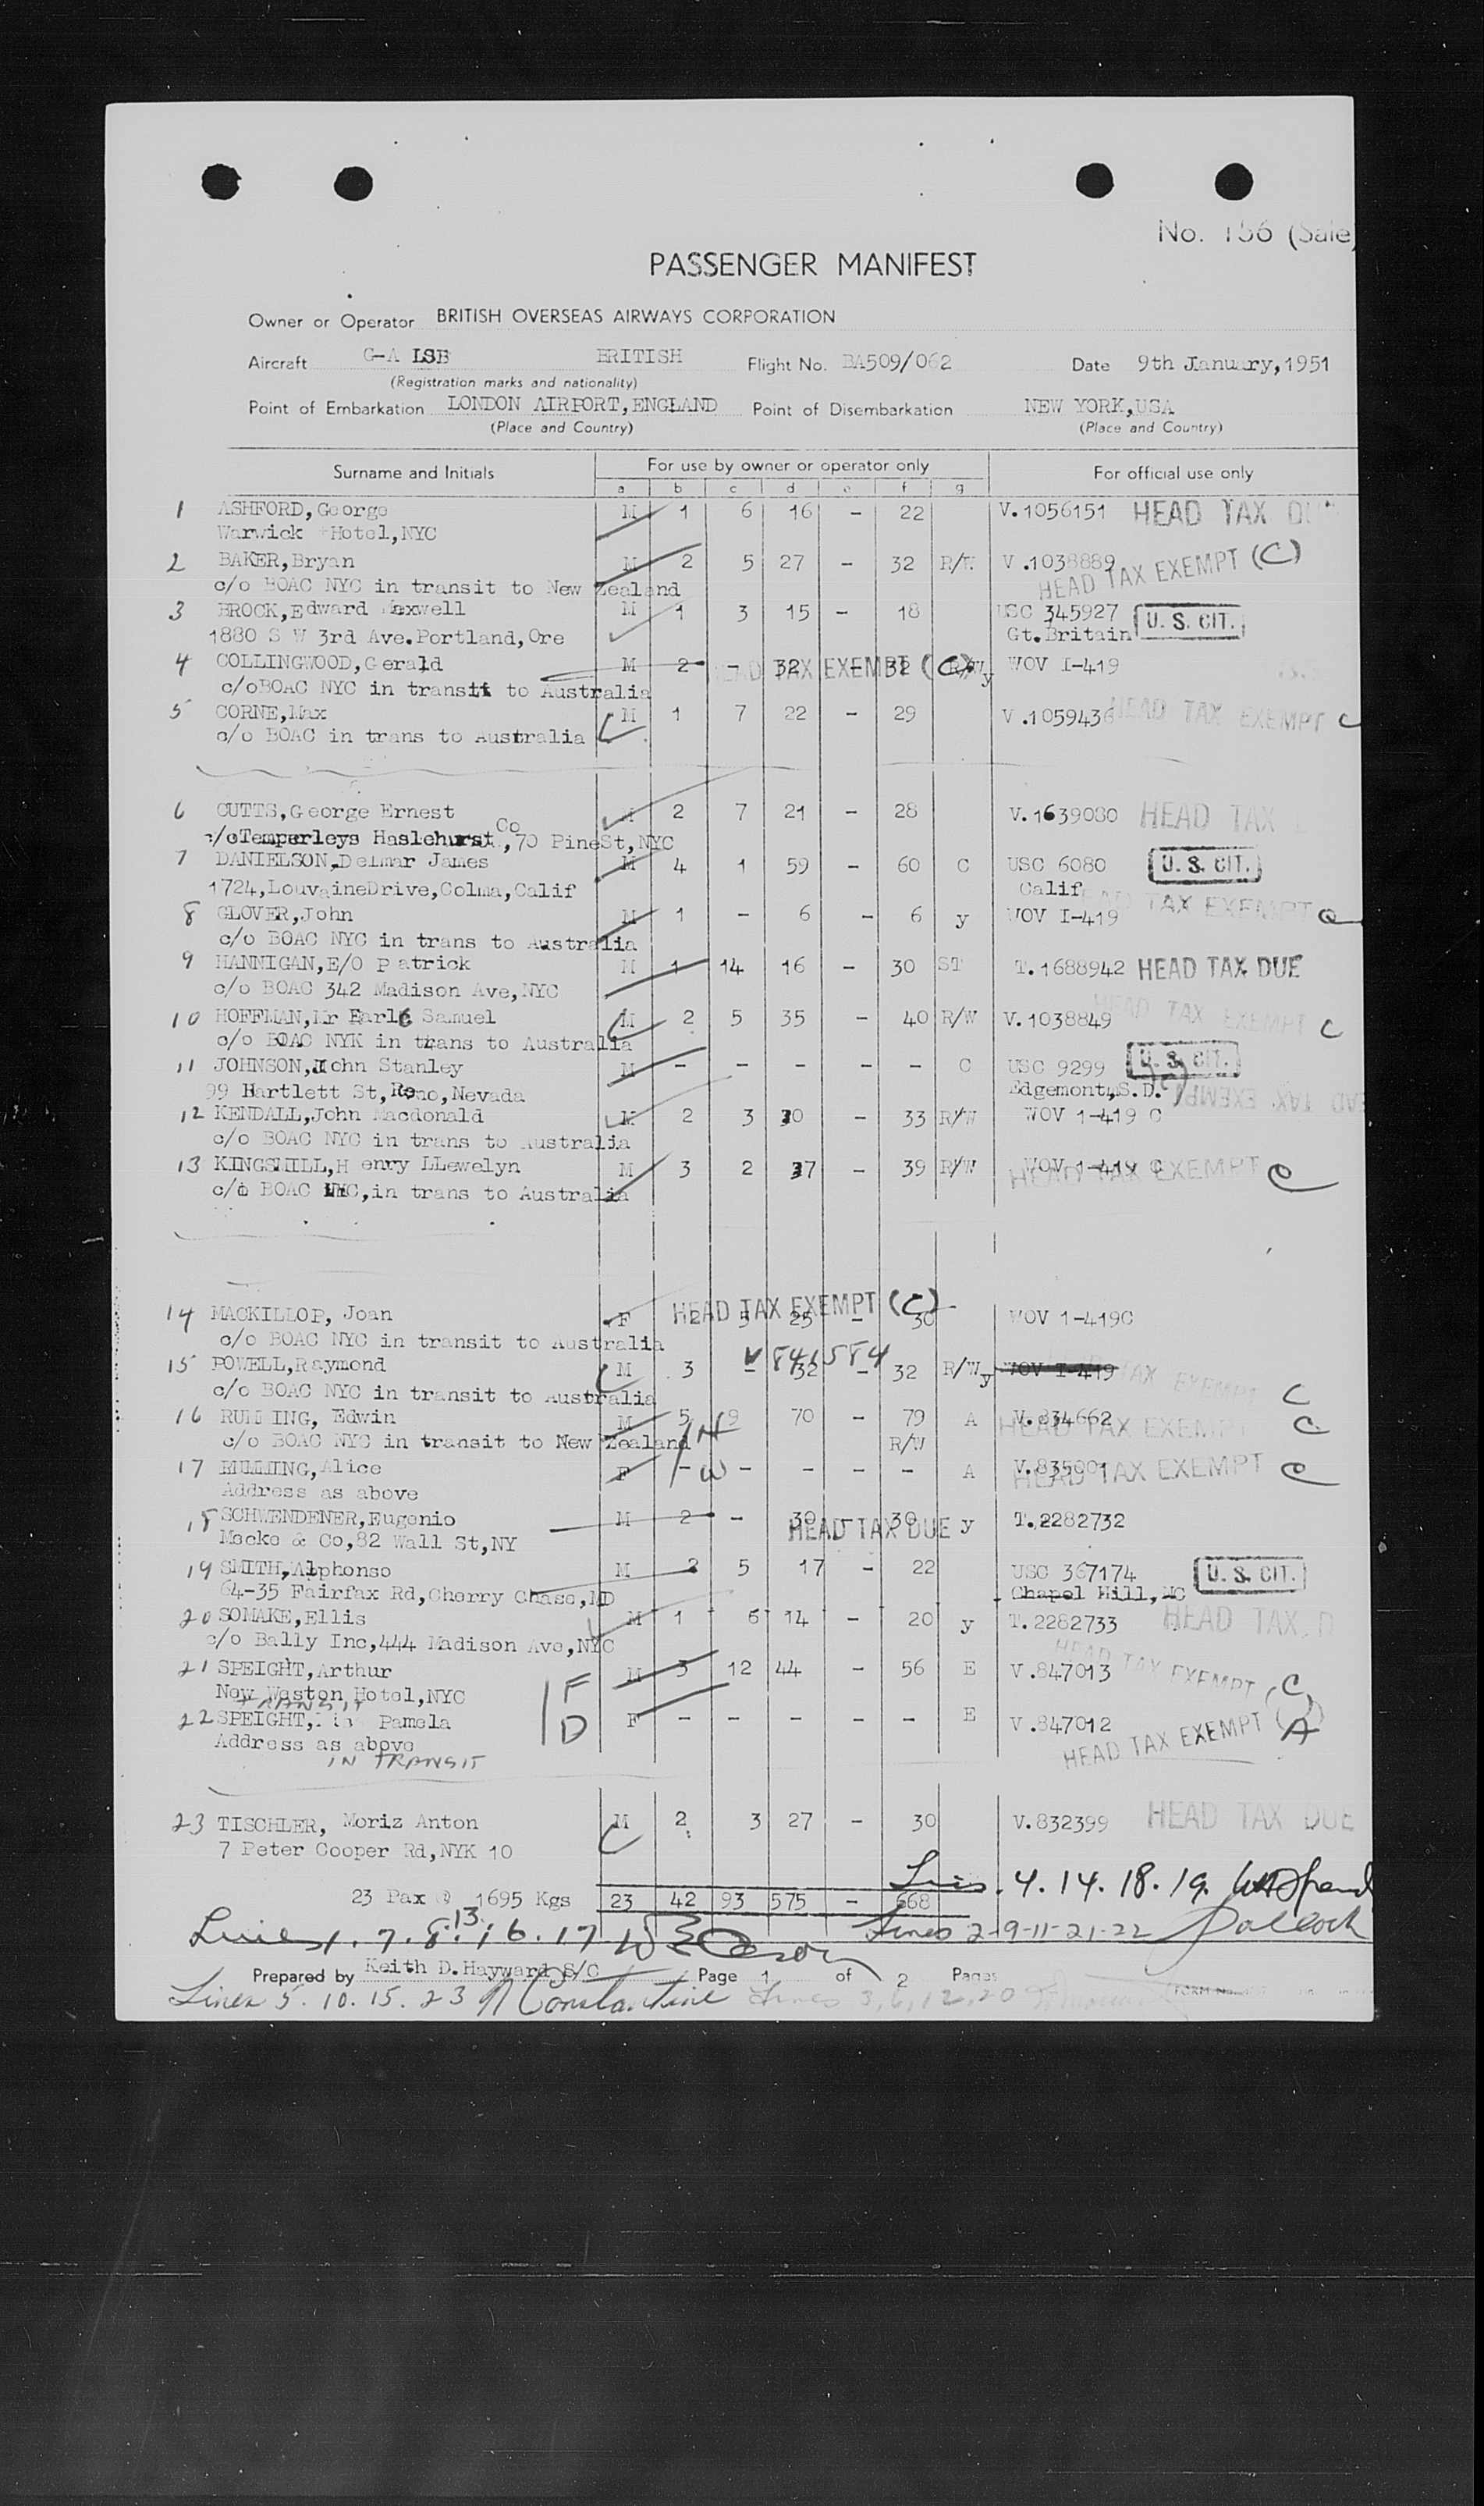 No. 156 (Sale)
PASSENGER MANIFEST
Owner or Operator BRITISH OVERSEAS AIRWAYS CORPORATION
Aircraft G-A LSB BRITISH Flight No. BA509/062 Date 9th January,1951
(Registration marks and nationality)
Point of Embarkation LONDON AIRPORT,ENGLAND Point of Disembarkation NEW YORK,USA
(Place and Country) (Place and Country)
Surname and Initials For use by owner or operator only For official use only
a b c d e f g
1 ASHFORD,George M 1 6 16 – 22 V.1056151 HEAD TAX
Warwick Hotel,NYC
2 BAKER,Bryan M 2 5 27 – 32 R/W V.1038889 HEAD TAX EXEMPT (C)
c/o BOAC NYC in transit to New Zealand
3 BROCK,Edward Maxwell M 1 3 15 – 18 USC 345927 U. S. CIT.
1880 S W 3rd Ave.Portland,Ore Gt.Britain
4 COLLINGWOOD,Gerald M 2 – 32 – 32 R/Wy WOV I-419 HEAD TAX EXEMPT (C)
c/oBOAC NYC in transit to Australia
5 CORNE,Max M 1 7 22 – 29 V.1059436 HEAD TAX EXEMPT C
c/o BOAC in trans to Australia
6 CUTTS,George Ernest M 2 7 21 – 28 V.1639080 HEAD TAX
c/oTemperleys Haslehurst Co,70 PineSt,NYC
7 DANIELSON,Delmar James M 4 1 59 – 60 C USC 6080 U. S. CIT.
1724,LouvaineDrive,Colma,Calif Calif
8 GLOVER,John M 1 – 6 – 6 y WOV I-419 HEAD TAX EXEMPT C
c/o BOAC NYC in trans to Australia
9 HANNIGAN,E/O Patrick M 1 14 16 – 30 ST T.1688942 HEAD TAX DUE
c/o BOAC 342 Madison Ave,NYC
10 HOFFMAN,Mr Earle Samuel M 2 5 35 – 40 R/W V.1038849 HEAD TAX EXEMPT C
c/o BOAC NYK in trans to Australia
11 JOHNSON,John Stanley M – – – – – C USC 9299 U. S. CIT.
99 Hartlett St,Reno,Nevada Edgemont,S.D.
12 KENDALL,John Macdonald M 2 3 30 – 33 R/W WOV 1-419 C HEAD TAX EXEMPT
c/o BOAC NYC in trans to Australia
13 KINGSMILL,Henry LLewelyn M 3 2 37 – 39 R/W WOV 1-419 C HEAD TAX EXEMPT C
c/o BOAC NYC,in trans to Australia
14 MACKILLOP, Joan F 2 5 25 – 30 WOV 1-419C HEAD TAX EXEMPT (C)
c/o BOAC NYC in transit to Australia
15 POWELL,Raymond M 3 – 32 – 32 R/Wy WOV I-419 V 841584 TAX EXEMPT C
c/o BOAC NYC in transit to Australia
16 RUMMING, Edwin M 5 9 70 – 79 A V.834662 HEAD TAX EXEMPT C
c/o BOAC NYC in transit to New Zealand R/W H
17 RUMMING,Alice F – – – – – A V.835001 HEAD TAX EXEMPT C
Address as above W
18 SCHWENDENER,Eugenio M 2 – 30 – 30 y T.2282732 HEAD TAX DUE
Mecke & Co,82 Wall St,NY
19 SMITH,Alphonso M 2 5 17 – 22 USC 367174 U. S. CIT.
64-35 Fairfax Rd,Cherry Chase,MD Chapel Hill,NC
20 SOMAKE,Ellis M 1 6 14 – 20 y T.2282733 HEAD TAX D
c/o Bally Inc,444 Madison Ave,NYC
21 SPEIGHT,Arthur M 3 12 44 – 56 E V.847013 HEAD TAX EXEMPT C
New Weston Hotel,NYC F
TRANSIT
22 SPEIGHT, Pamela D F – – – – – E V.847012 HEAD TAX EXEMPT A
Address as above
IN TRANSIT
23 TISCHLER, Moriz Anton M 2 3 27 – 30 V.832399 HEAD TAX DUE
7 Peter Cooper Rd,NYK 10
23 Pax @ 1695 Kgs 23 42 93 575 – 668
Lines. 4. 14. 18. 19.
Lines 1. 7. 8. 13. 16. 17 Lines 2-9-11-21-22 Pollock
Prepared by Keith D.Hayward S/C Page 1 of 2 Pages
Lines 5. 10. 15. 23 N Constantine Lines 3,6,12,20